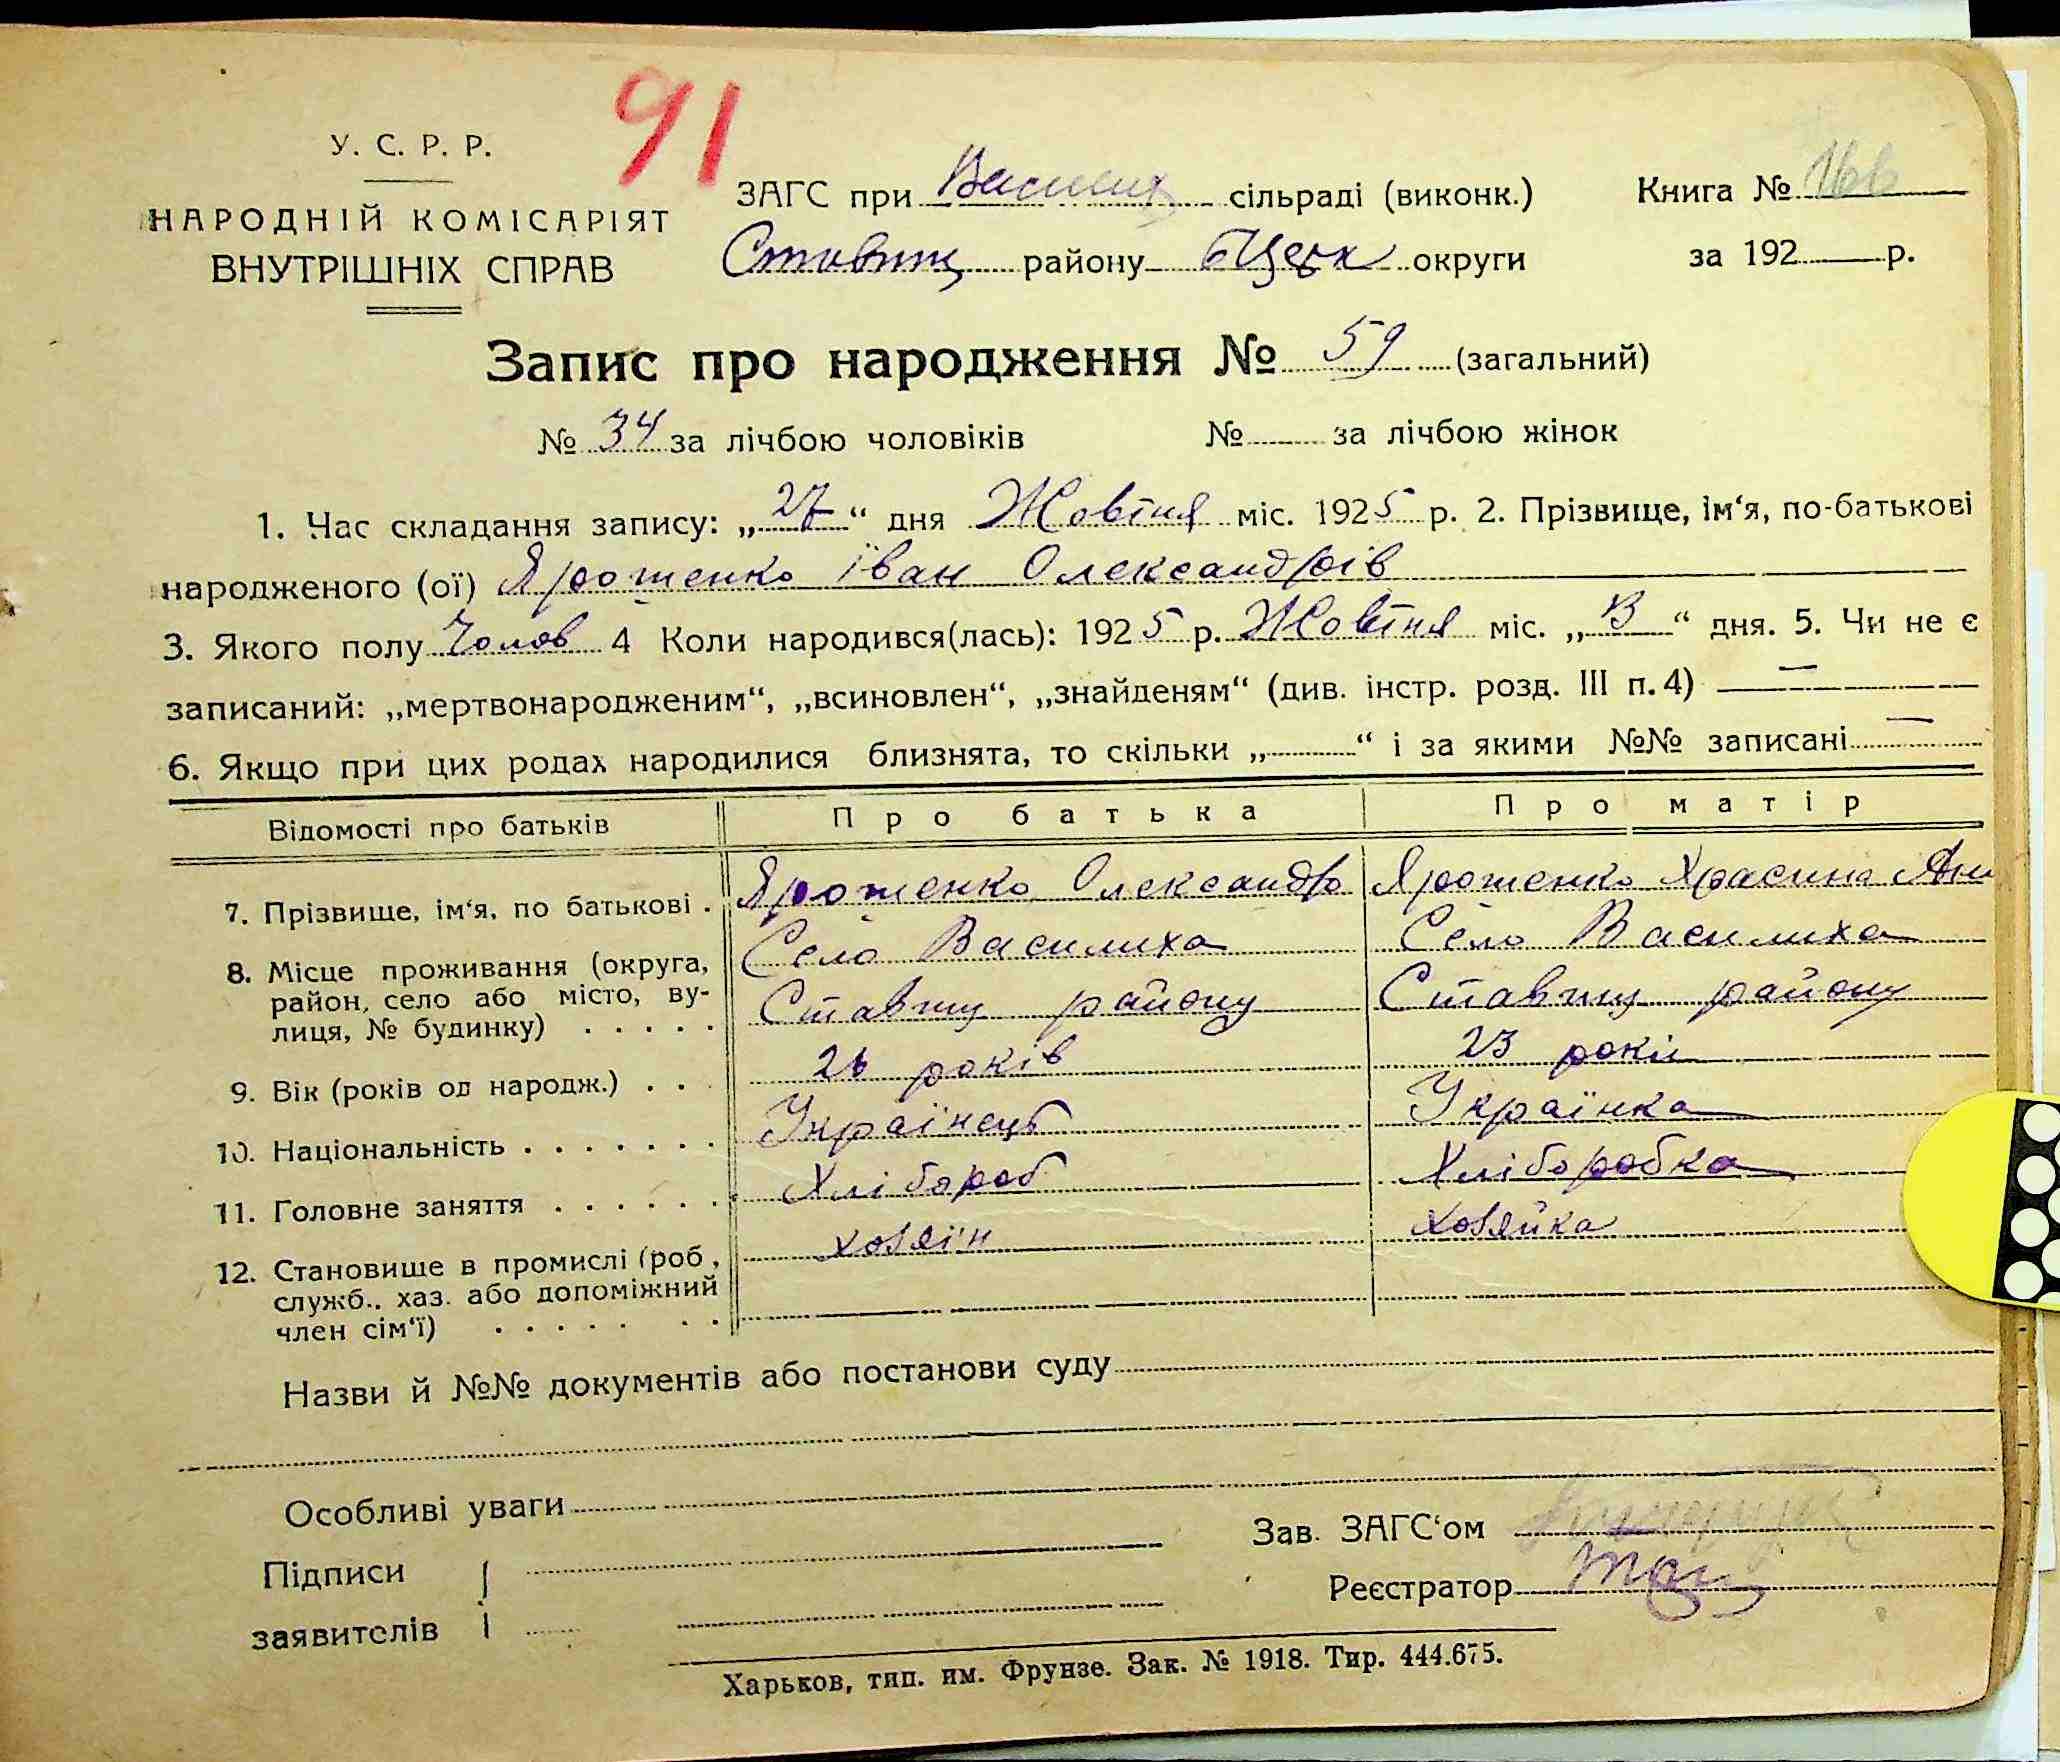 91
У. С. Р. Р.
НАРОДНІЙ КОМІСАРІЯТ
ВНУТРІШНІХ СПРАВ
ЗАГС при Василих сільраді (виконк.)
Ставищ району БЦерк округи
Книга №
за 192 р.
Запис про народження № 59 (загальний)
№ 34 за лічбою чоловіків № за лічбою жінок
1. Час складання запису: „27“ дня Жовтня міс. 1925 р. 2. Прізвище, ім‘я, по-батькові
народженого (ої) Ярошенко Іван Олександрів
3. Якого полу Чолов 4 Коли народився(лась): 1925 р. Жовтня міс. „ “ дня. 5. Чи не є
записаний: „мертвонародженим“, „всиновлен“, „знайденям“ (див. інстр. розд. III п. 4) —
6. Якщо при цих родах народилися близнята, то скільки „ “ і за якими №№ записані —
Відомості про батьків Про батька Про матір
7. Прізвище, ім‘я, по батькові . Ярошенко Олександр Ярошенко
8. Місце проживання (округа, Село Василиха Село Василиха
район, село або місто, ву- Ставищ району Ставищ району
лиця, № будинку) . . . . .
9. Вік (років од народж.) . . 26 років 23 роки
10. Національність . . . . . . . Українець Українка
11. Головне заняття . . . . . . Хлібороб Хліборобка
12. Становище в промислі (роб., хозяїн хозяйка
служб., хаз. або допоміжний
член сім‘ї) . . . . . . .
Назви й №№ документів або постанови суду
Особливі уваги
Зав. ЗАГС‘ом
Підписи
Реєстратор
заявителів
Харьков, тип. им. Фрунзе. Зак. № 1918. Тир. 444.675.